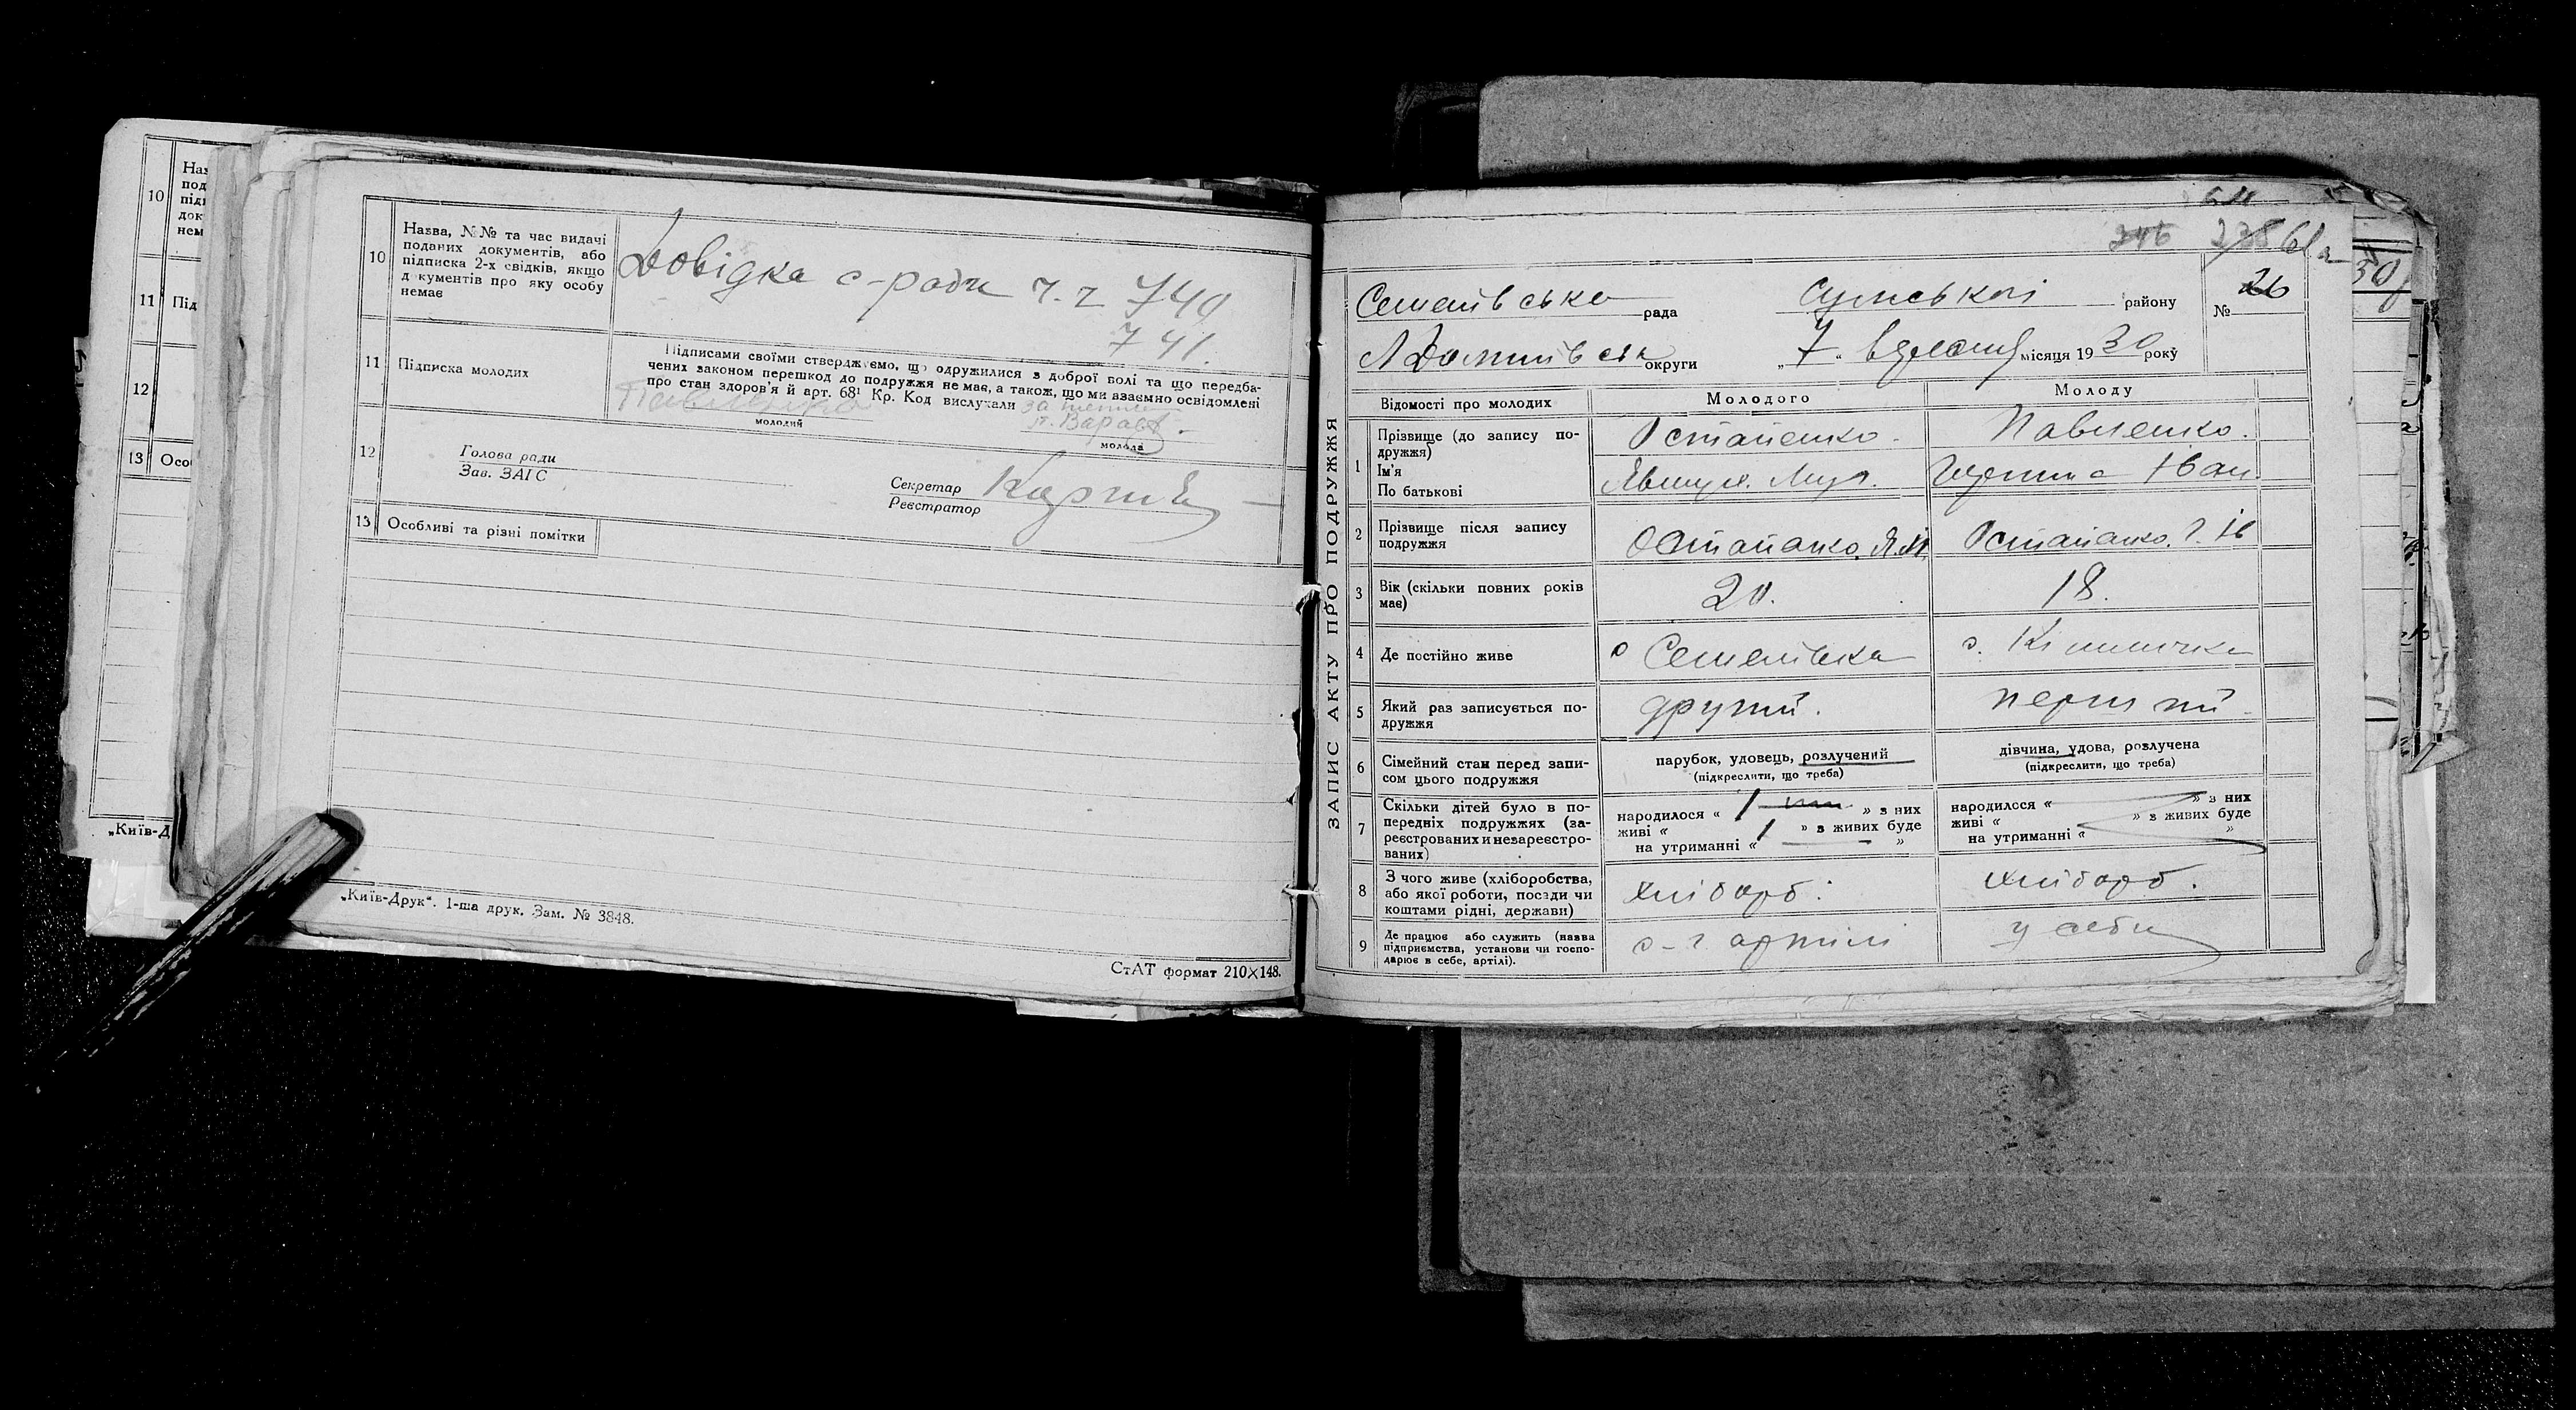 10
Наз
под
підп
док
нем
11 Під
12
13 Осо
„Київ-Д
10 Назва, №№ та час видачі
поданих документів, або
підписка 2-х свідків, якщо
документів про яку особу
немає
Довідка с-ради ч.ч 740
741.
11 Підписка молодих
Підписами своїми стверджуємо, що одружилися з доброї волі та що передба-
чених законом перешкод до подружжя не має, а також, що ми взаємно освідомлені
про стан здоров'я й арт. 68¹ Кр. Код вислухали
молодий
молода
12 Голова ради
Зав. ЗАГС
Секретар
Реєстратор
13 Особливі та різні помітки
„Київ-Друк". 1-ша друк. Зам. № 3848.
СтАТ формат 210×148.
ЗАПИС АКТУ ПРО ПОДРУЖЖЯ
246
Семенівська рада
району
№ 26
округи
„ 7 " місяця 1930 року
Відомості про молодих
Молодого
Молоду
1 Прізвище (до запису по-
дружжя)
Ім'я
По батькові
Остапенко.
Павленко.
Іван.
2 Прізвище після запису
подружжя
Остапенко. Я.М.
Остапенко. Г. Ів
3 Вік (скільки повних років
має)
20.
18.
4 Де постійно живе
с Семенівка
с.
5 Який раз записується по-
дружжя
другий.
перший
6 Сімейний стан перед запи-
сом цього подружжя
парубок, удовець, розлучений
(підкреслити, що треба)
дівчина, удова, розлучена
(підкреслити, що треба)
7 Скільки дітей було в по-
передніх подружжях (за-
реєстрованих и незареєстро-
ваних)
народилося « 1 » з них
живі « 1 » з живих буде
на утриманні « »
народилося « » з них
живі « » з живих буде
на утриманні « »
8 З чого живе (хліборобства,
або якої роботи, посади чи
коштами рідні, держави)
хлібороб.
хлібороб.
9 Де працює або служить (назва
підприємства, установи чи госпо-
дарює в себе, артілі).
с-г артілі
у себе